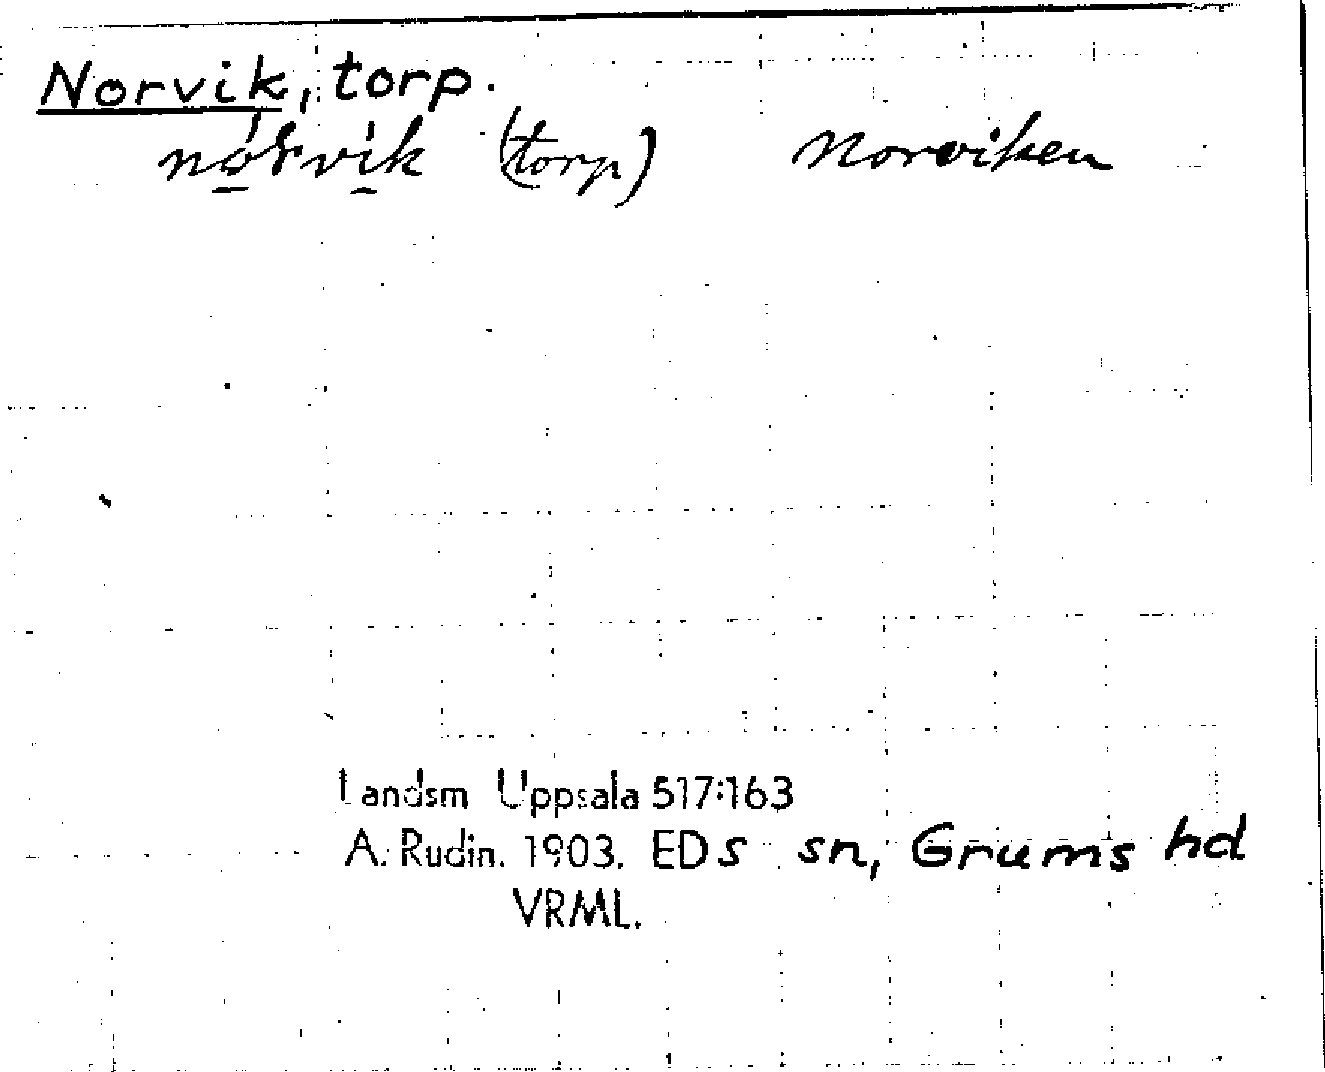 Norvik, torp.
nórvìk (torp) Norviken
Landsm Uppsala 517:163
A. Rudin. 1903. EDS sn, Grums hd
VRML.